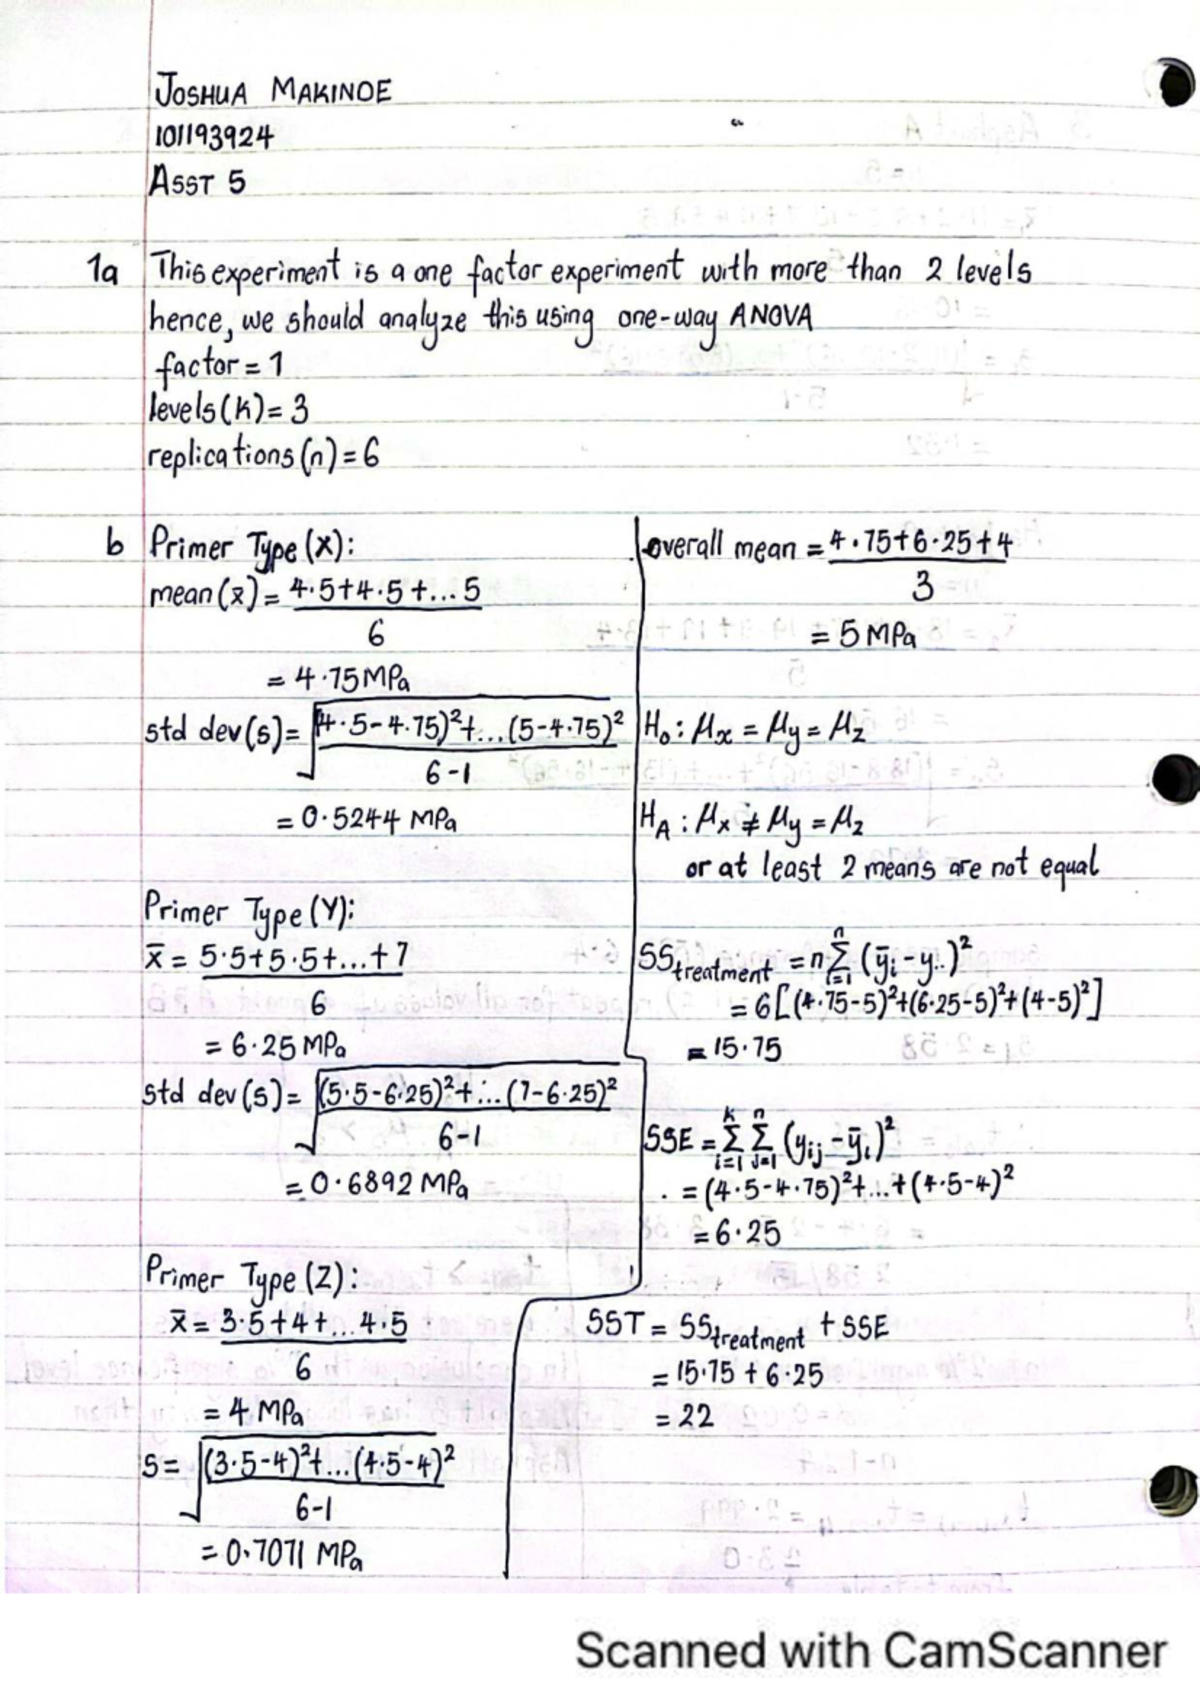 JOSHUA MAKINDE
101193924
ASST 5
1a This experiment is a one factor experiment with more than 2 levels
hence, we should analyze this using one-way ANOVA
factor = 1
levels (k) = 3
replications (n) = 6
b Primer Type (X):
mean (x̄) = 4.5+4.5+...5
6
= 4.75MPa
std dev (s) = √(4.5-4.75)²+...(5-4.75)²
6-1
= 0.5244 MPa
Primer Type (Y):
x̄ = 5.5+5.5+...+7
6
= 6.25 MPa
std dev (s) = √(5.5-6.25)²+...(7-6.25)²
6-1
= 0.6892 MPa
Primer Type (Z):
x̄ = 3.5+4+...4.5
6
= 4 MPa
s = √(3.5-4)²+...(4.5-4)²
6-1
= 0.7071 MPa
overall mean = 4.75+6.25+4
3
= 5 MPa
H₀: μx = μy = μz
HA: μx ≠ μy = μz
or at least 2 means are not equal
SStreatment = n Σ (ȳi - y..)²
n
i=1
= 6[(4.75-5)²+(6.25-5)²+(4-5)²]
= 15.75
k n
SSE = Σ Σ (yij - ȳi)²
i=1 j=1
= (4.5-4.75)²+...+(4.5-4)²
= 6.25
SST = SStreatment + SSE
= 15.75 + 6.25
= 22
Scanned with CamScanner